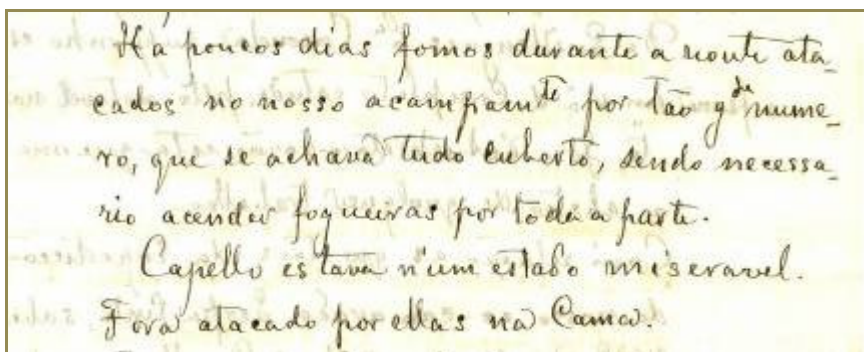 Há poucos dias fomos durante a noute ata_
cados no nosso acampam^to por tão g^de nume_
ro, que se achava tudo cuberto, sendo necessa_
rio acender fogueiras por toda a parte.
Capello estava n'um estado miseravel.
Fora atacado por ellas na Cama.